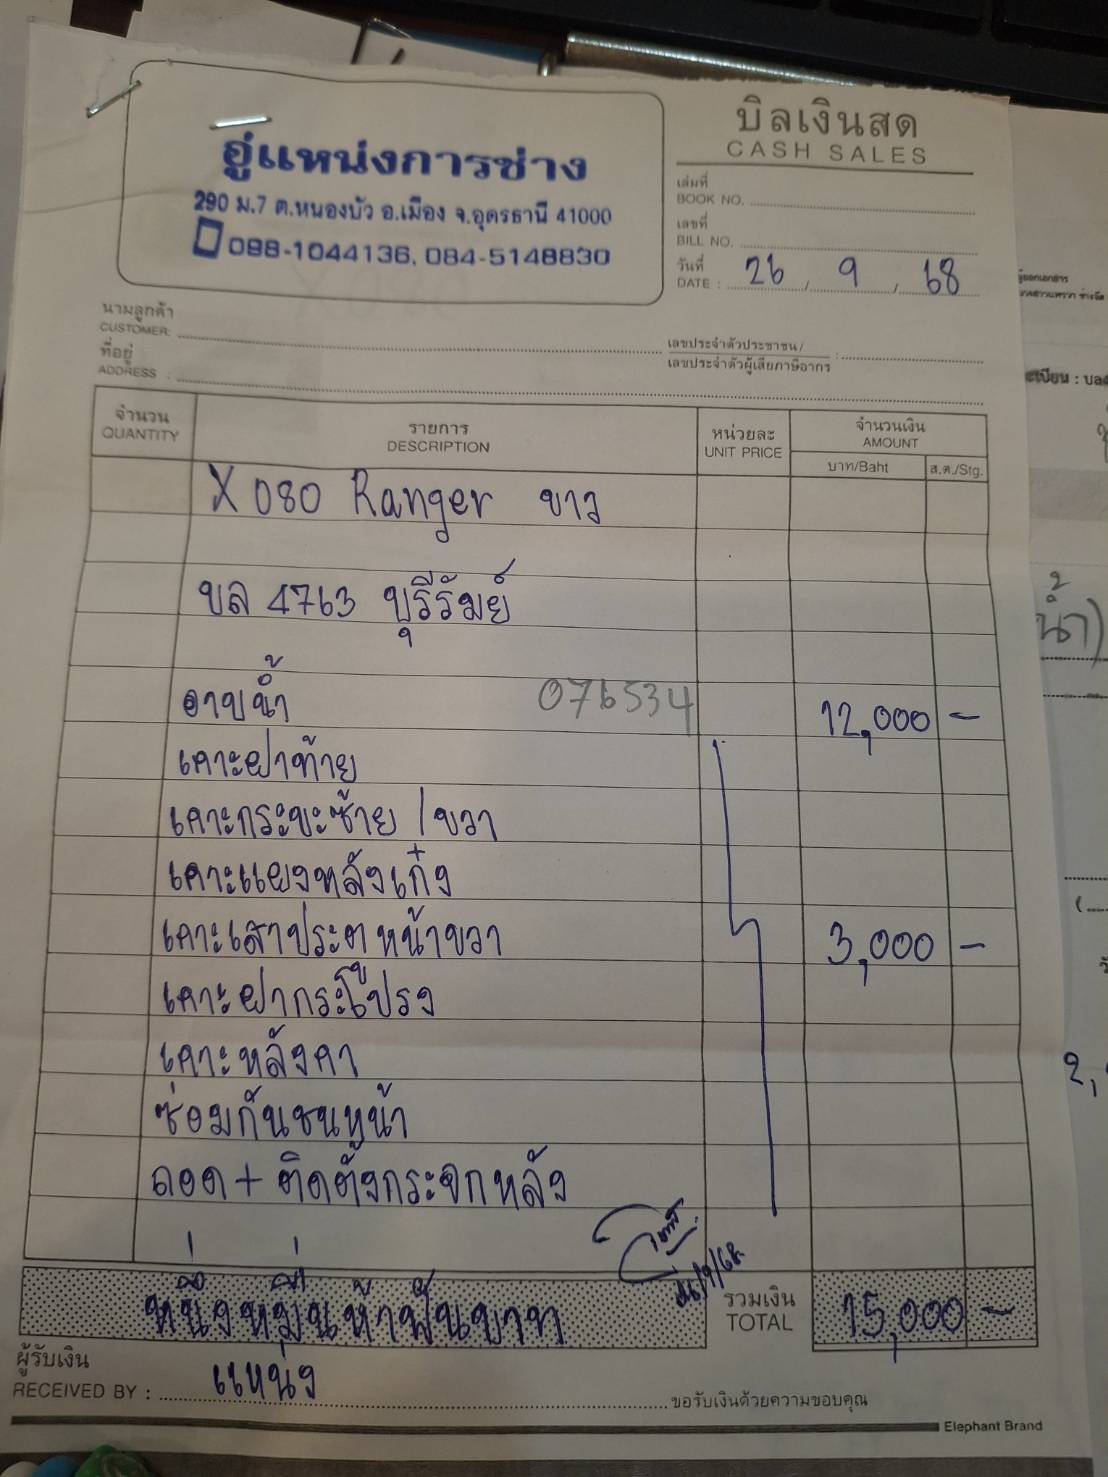 บิลเงินสด
CASH SALES
อู่แหน่งการช่าง
290 ม.7 ต.หนองบัว อ.เมือง จ.อุดรธานี 41000
088-1044136, 084-5148830
เล่มที่
BOOK NO.
เลขที่
BILL NO.
วันที่
DATE : 26 / 9 / 68
นามลูกค้า
CUSTOMER:
เลขประจำตัวประชาชน/
เลขประจำตัวผู้เสียภาษีอากร :
ที่อยู่
ADDRESS :
จำนวน รายการ หน่วยละ จำนวนเงิน
QUANTITY DESCRIPTION UNIT PRICE AMOUNT
บาท/Baht ส.ต./Stg.
X080 Ranger ขาว
ขล 4763 บุรีรัมย์
อาบน้ำ 076534 12,000 -
เคาะฝาท้าย
เคาะกระบะซ้าย / ขวา
เคาะแผงหลังเก๋ง
เคาะเสาประตูหน้าขวา 3,000 -
เคาะฝากระโปรง
เคาะหลังคา
ซ่อมกันชนหน้า
ถอด + ติดตั้งกระจกหลัง
26/9/68
หนึ่งหมื่นห้าพันบาท รวมเงิน 15,000 -
TOTAL
ผู้รับเงิน
RECEIVED BY : แหน่ง ขอรับเงินด้วยความขอบคุณ
Elephant Brand